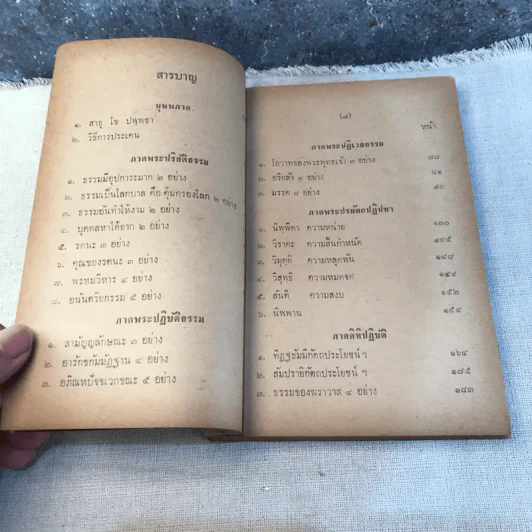 สารบาญ
บุพพภาค
๑. สาธุ โข ปพฺพชา
๒. วิธีการประเคน
ภาคพระปริยัติธรรม
๑. ธรรมมีอุปการะมาก ๒ อย่าง
๒. ธรรมเป็นโลกบาล คือ คุ้มครองโลก ๒ อย่าง
๓. ธรรมอันทำให้งาม ๒ อย่าง
๔. บุคคลหาได้ยาก ๒ อย่าง
๕. รตนะ ๓ อย่าง
๖. คุณของรตนะ ๓ อย่าง
๗. พรหมวิหาร ๔ อย่าง
๘. อนันตริยกรรม ๕ อย่าง
ภาคพระปฏิบัติธรรม
๑. สามัญญลักษณะ ๓ อย่าง
๒. อารักขกัมมัฏฐาน ๔ อย่าง
๓. อภิณหปัจจเวกขณะ ๕ อย่าง
หน้า
ภาคพระปฏิเวธธรรม
๑. โอวาทของพระพุทธเจ้า ๓ อย่าง ๗๘
๒. อริยสัจ ๔ อย่าง ๘๑
๓. มรรค ๘ อย่าง ๙๐
ภาคพระปรมัตถปฏิปทา
๑. นิพพิทา ความหน่าย ๑๓๐
๒. วิราคะ ความสิ้นกำหนัด ๑๔๕
๓. วิมุตติ ความหลุดพ้น ๑๔๘
๔. วิสุทธิ ความหมดจด
๕. สันติ ความสงบ ๑๕๒
๖. นิพพาน ๑๕๔
ภาคคิหิปฏิบัติ
๑. ทิฏฐธัมมิกัตถประโยชน์ ฯ ๑๖๔
๒. สัมปรายิกัตถประโยชน์ ฯ ๑๗๕
๓. ธรรมของฆราวาส ๔ อย่าง ๑๘๓